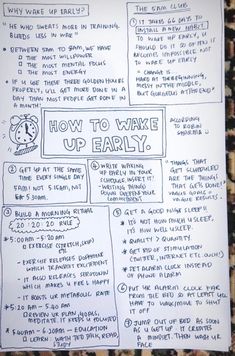 WHY WAKE UP EARLY?
"HE WHO SWEATS MORE IN TRAINING
BLEEDS LESS IN WAR"
• BETWEEN 5AM TO 8AM, WE HAVE
THE MOST WILLPOWER
THE MOST MENTAL FOCUS
THE MOST ENERGY
• IF U USE THESE THREE GOLDEN HOURS
PROPERLY, U'LL GET MORE DONE IN A
DAY THAN MOST PEOPLE GET DONE IN
A MONTH
THE 5AM CLUB
① IT TAKES 66 DAYS TO
INSTALL A NEW HABIT
TO WAKE UP EARLY, U
SHOULD DO IT SO OFTEN IT
BECOMES IMPOSSIBLE NOT
TO WAKE UP EARLY
"CHANGE IS
HARD AT THE BEGINNING,
MESSY IN THE MIDDLE,
BUT GORGEOUS AT THE END"
HOW TO WAKE
UP EARLY.
ACCORDING
TO ROBIN
SHARMA
② GET UP AT THE SAME
TIME EVERY SINGLE DAY
5AM! NOT 5:15AM, NOT
5:30AM
④ WRITE WAKING
UP EARLY IN YOUR
SCHEDULE. INSERT IT!
WRITING THINGS
DOWN
YOUR
COMMITMENT
"THINGS THAT
GET SCHEDULED
ARE THE THINGS
THAT GETS DONE!
VAGUE GOALS =
VAGUE RESULTS"
③ BUILD A MORNING RITUAL
20:20:20 RULE
5:00AM - 5:20AM
EXERCISE (STRETCH,
ETC)
EXERCISE RELEASES DOPAMINE
WHICH
IT ALSO RELEASES SEROTONIN
WHICH MAKES U FEEL HAPPY
IT BOOSTS UR METABOLIC RATE
5:20AM - 5:40AM
REVIEW UR PLAN, GOALS,
MEDITATE, IT KEEPS U
FOCUSED
5:40AM - 6:00AM - EDUCATION
LEARN WATCH TED TALK, READ,
⑤ GET A GOOD NIGHT SLEEP
IT'S NOT HOW MUCH U SLEEP,
IT'S HOW WELL U SLEEP.
QUALITY > QUANTITY
GET RID OF STIMULATION
(TWITTER, INTERNET ETC.)
SET ALARM CLOCK INSTEAD
OF PHONE ALARM
⑥ PUT UR ALARM CLOCK FAR
FROM THE BED SO AT LEAST U
HAVE TO WALK/MOVE TO SHUT
IT OFF
⑦ JUMP OUT OF BED AS SOON
AS U GET UP. IT CREATES
A MINDSET. THEN WASH UR
FACE